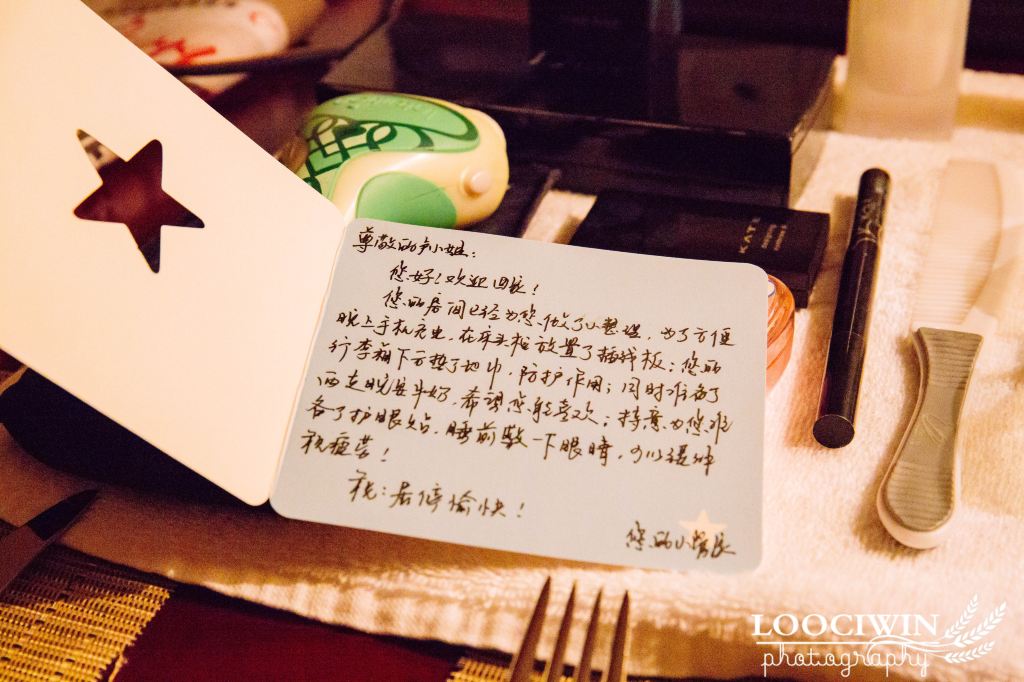 尊敬的卢小姐：
您好！欢迎回家！
您的房间已经为您做了小整理，为了方便
晚上手机充电，在床头柜放置了插线板；您的
行李箱下方垫了地巾，防护作用；同时准备了
两支晚安牛奶，希望您能喜欢；特意为您准
备了护眼贴，睡前敷一下眼睛，可以缓解
视疲劳！
祝：居停愉快！
您的小管家
KATE
LOOCIWIN
photography